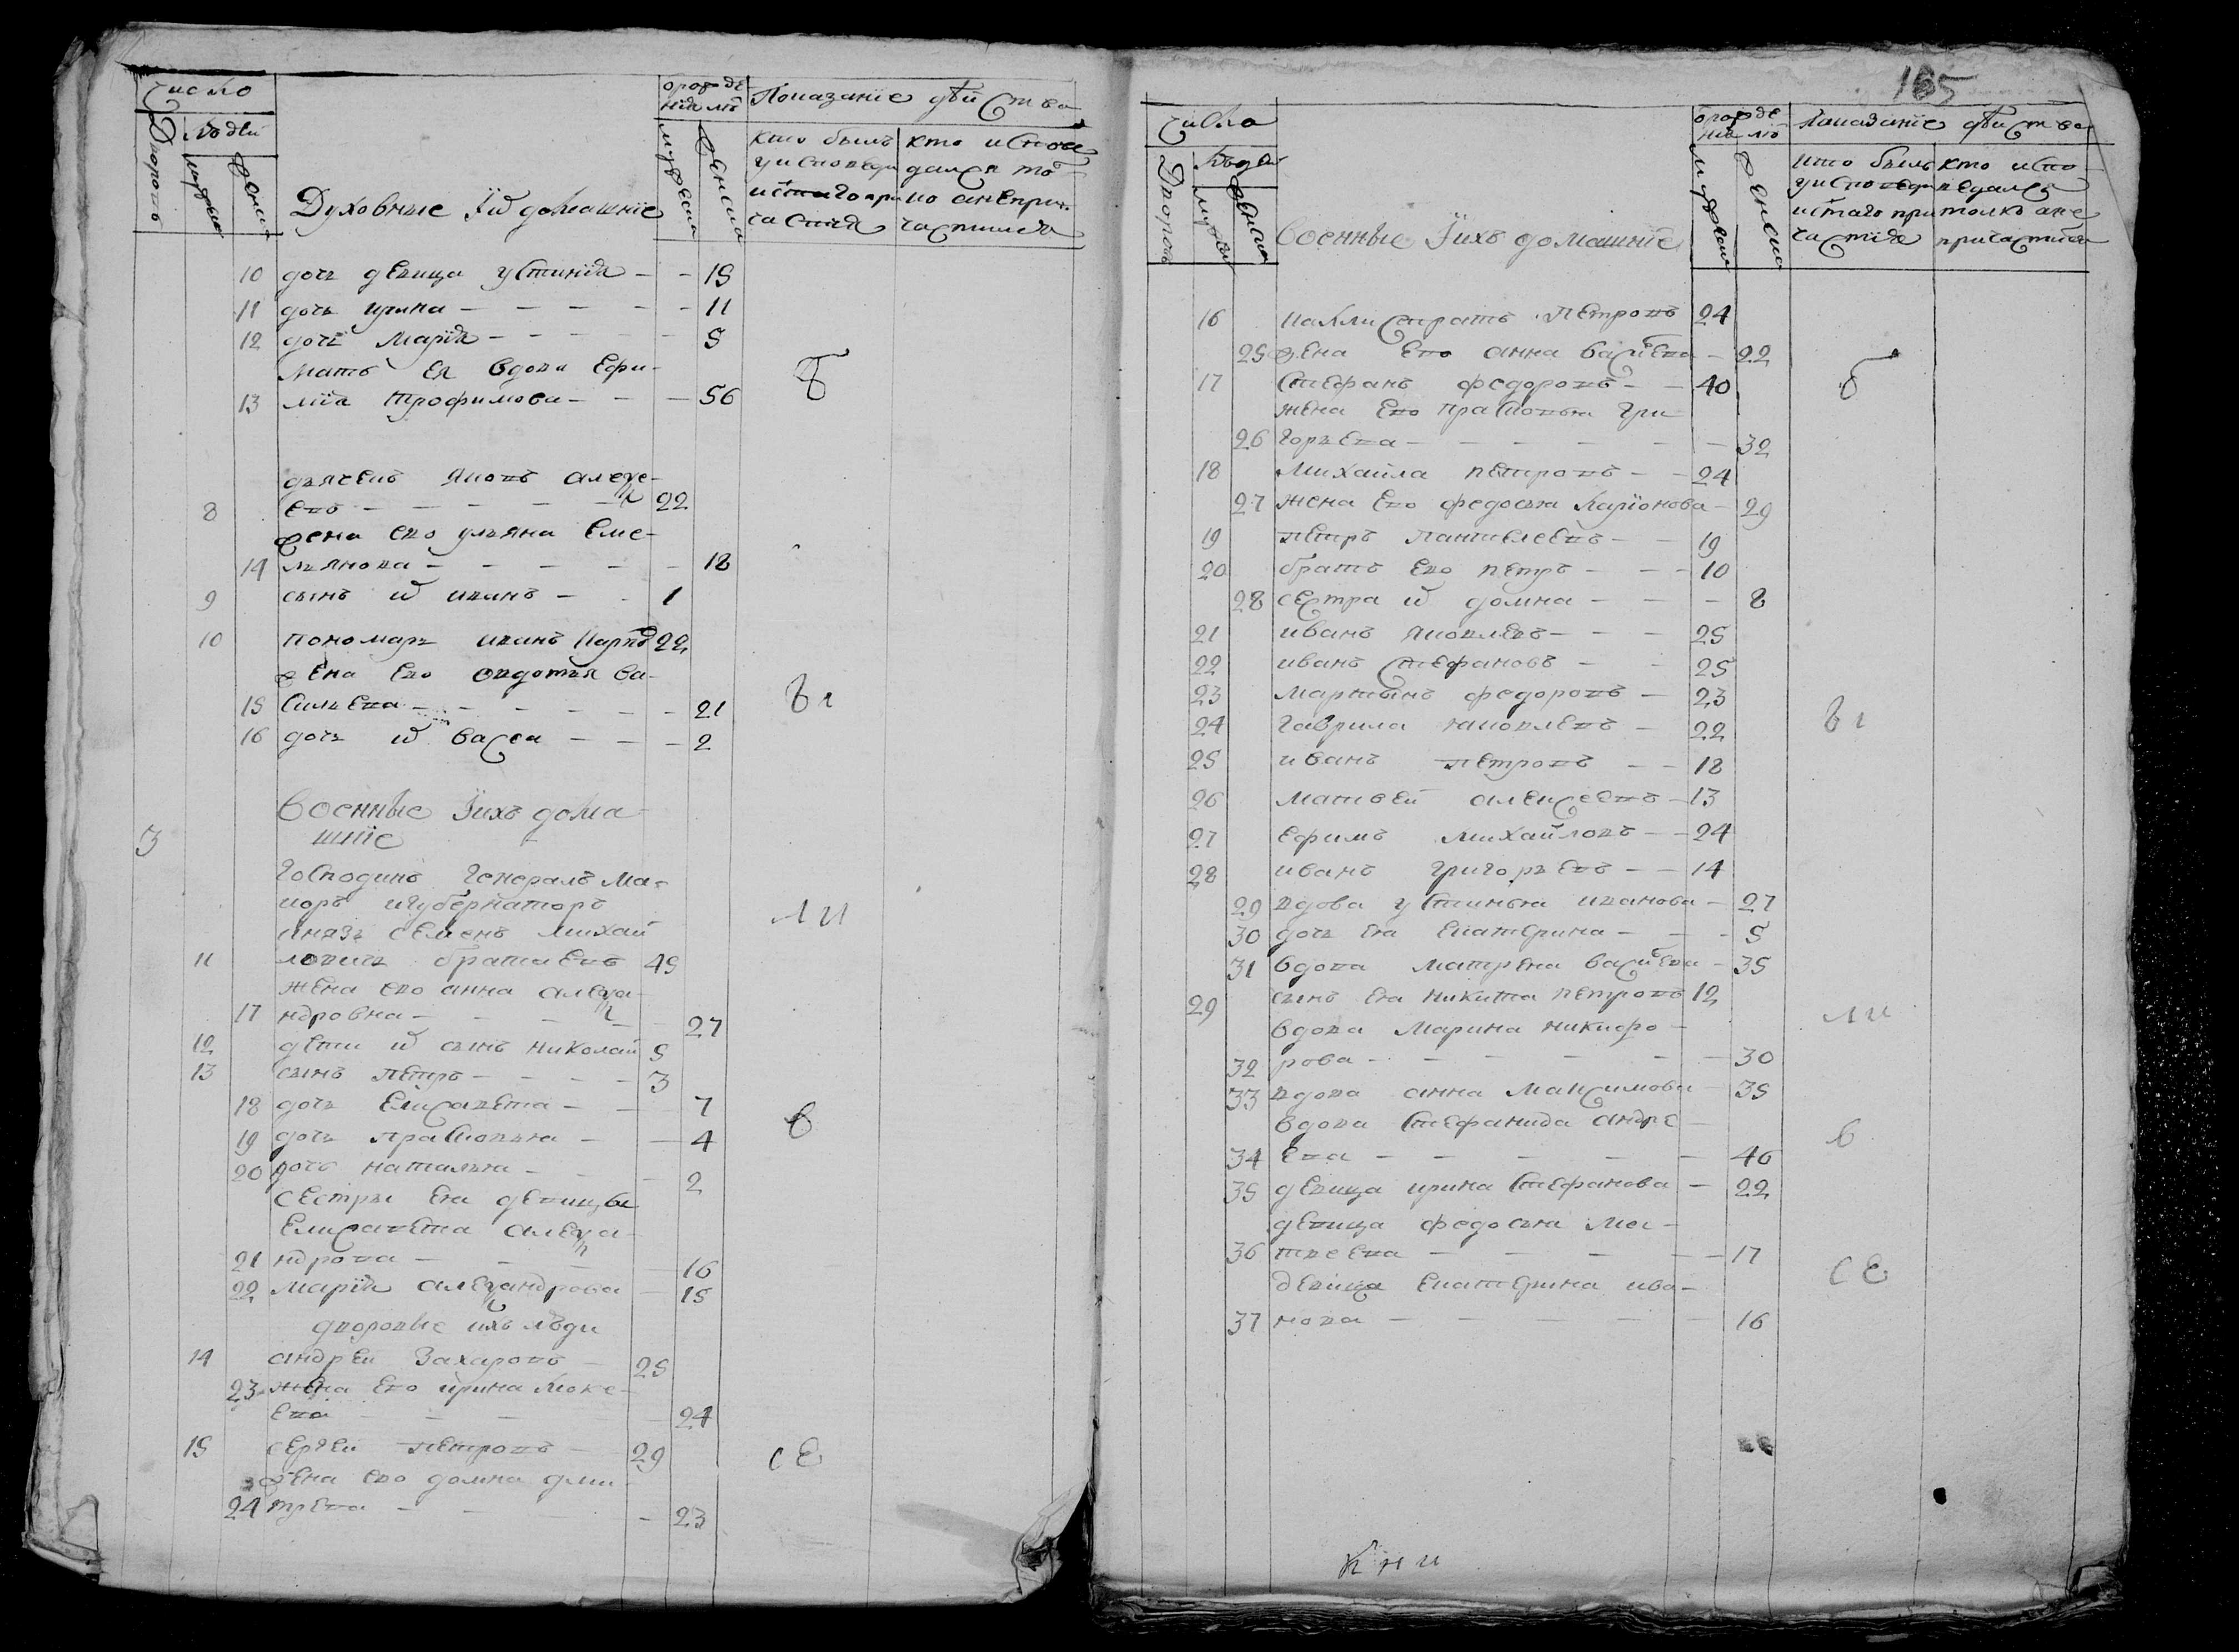 число
людей
дворовъ
мужеска
женска
Духовные їѿ домашнїе
ѿ рожде
нїѧ лѣ
мужеска
женска
Показанїе дѣйства
кто былъ
у исповеди
и с҃таго при
частїѧ
кто испове
далсѧ то
ко а не при
частилсѧ
10 дочь девица устинїѧ — — 15
11 дочь ирина — — — — 11
12 дочь марїѧ — — — — 5
мать еѧ вдова ефи-
13 мїѧ трофимова — — — 56
б
дьячекъ яковъ алеѯе-
8 евъ — — — — 22
жена ево ульяна еме-
14 льянова — — — — 18
9 сынъ ѿ иванъ — — 1
10 пономарь иванъ карпо 22
жена ево овдотья ва-
15 сильева — — — — 21
16 дочь ѿ васса — — — 2
ы
военные їихъ дома-
шнїе
3
Господинъ генералъ ма-
иоръ игубернаторъ
князь семенъ михай
11 ловичь баратаевъ 45
жена ево анна алеѯа-
17 ндровна — — — — 27
12 дети ѿ сынъ николай 5
13 сынъ петръ — — — 3
18 дочь елисавета — — 7
19 дочь прасковья — — 4
20 дочь наталья — — 2
сестры ея девицы
елисавета алеѯа-
21 ндрова — — — 16
22 марїѧ алеѯандрова — 15
дворовые ихъ люди
14 андрей захаровъ — 25
23 жена ево ирина моке-
ева — — — — 24
15 сергей петровъ — 29
жена ево домна дми-
24 трева — — — 23
ли
в
се
165
число
людей
дворовъ
мужеска
женска
военные їихъ домашнїе
ѿ рожде
нїѧ лѣ
мужеска
женска
Показанїе дѣйства
кто былъ
у исповеди
и с҃таго при
частїѧ
кто испо
ведалсѧ
толко а не
причастилсѧ
16 калистратъ петровъ 24
25 жена ево анна васильева — 22
17 стефанъ федоровъ — — 40
жена ево прасковья гри-
26 горьева — — — — 32
18 михайла петровъ — — 24
27 жена ево федосья ларїонова — 29
19 петръ пантелеевъ — — 19
20 братъ ево петръ — — 10
28 сестра ѿ домна — — — 8
21 иванъ яковлевъ — — 25
22 иванъ стефановъ — — 25
23 мартынъ федоровъ — 23
24 гаврила яковлевъ — 22
25 иванъ петровъ — — 18
26 матвей алексеевъ — 13
27 ефимъ михайловъ — — 24
28 иванъ григорьевъ — — 14
29 вдова устинья иванова — 27
30 дочь ея екатерина — — 5
31 вдова матрена васильева — 35
29 сынъ ея никита петровъ 12
вдова марина никифо-
32 рова — — — — 30
33 вдова анна максимова — 35
вдова стефанида андре-
34 ева — — — — 46
35 девица ирина стефанова — 22
девица федосья ма-
36 твеева — — — — 17
девица екатерина ива-
37 нова — — — — 16
б
ы
ли
в
се
кни